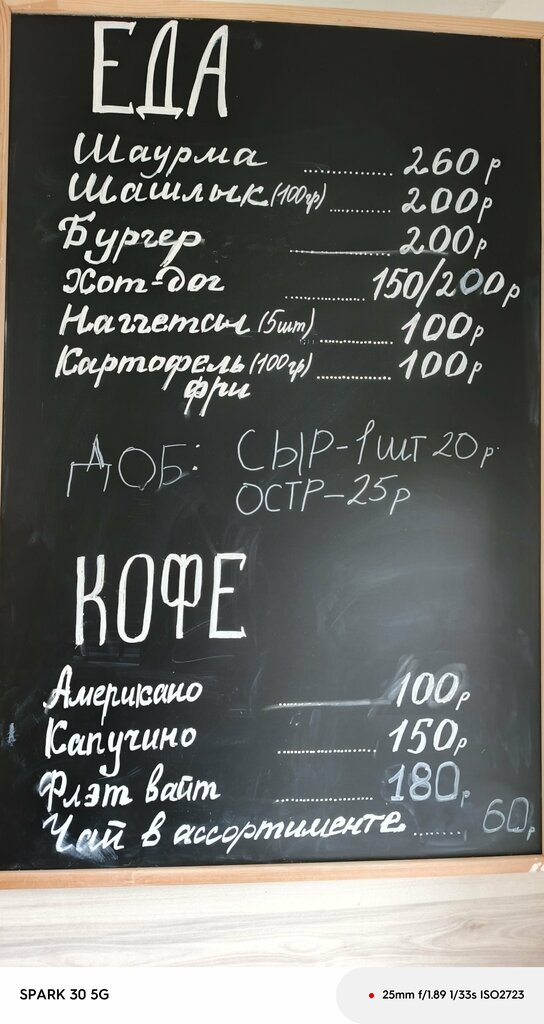 ЕДА
Шаурма ............ 260р
Шашлык (100гр) ......... 200р
Бургер ............ 200р
Хот-дог ............ 150/200р
Наггетсы (5шт) ............ 100р
Картофель (100гр) ............ 100р
фри
ДОБ: СЫР-1 ШТ 20р.
ОСТР-25р
КОФЕ
Американо ............ 100р
Капучино ............ 150р
Флэт вайт ............ 180р
Чай в ассортименте ....... 60р
SPARK 30 5G
25mm f/1.89 1/33s ISO2723